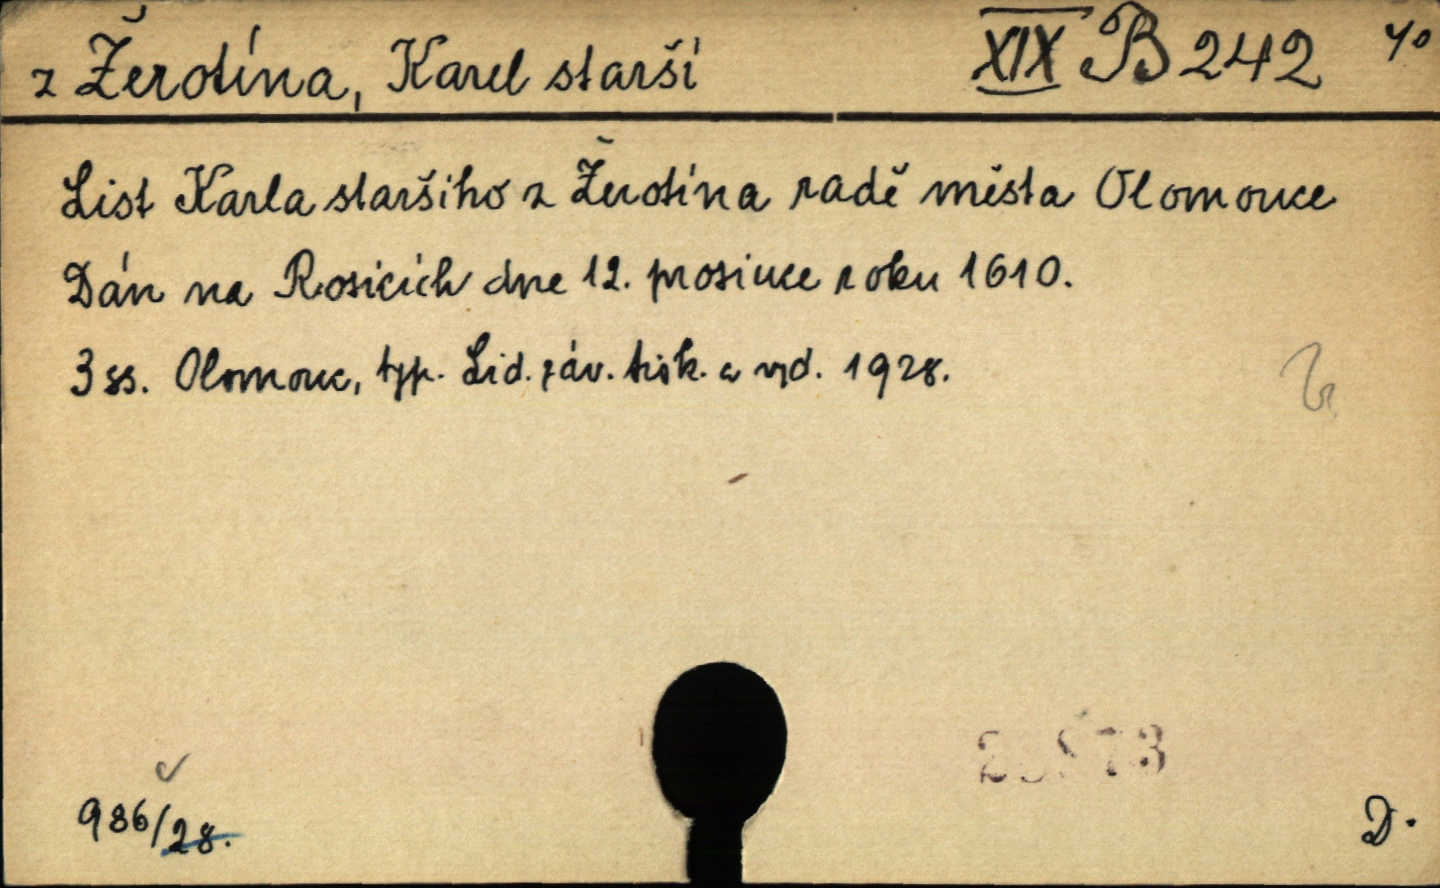 z Žerotína, Karel starší XIX B 242 4o
List Karla staršího z Žerotína radě města Olomouce
Dán na Rosicích dne 12. prosince roku 1610.
3 ss. Olomouc, typ. Lid. záv. tisk. a vyd. 1928.
936/28.
D.